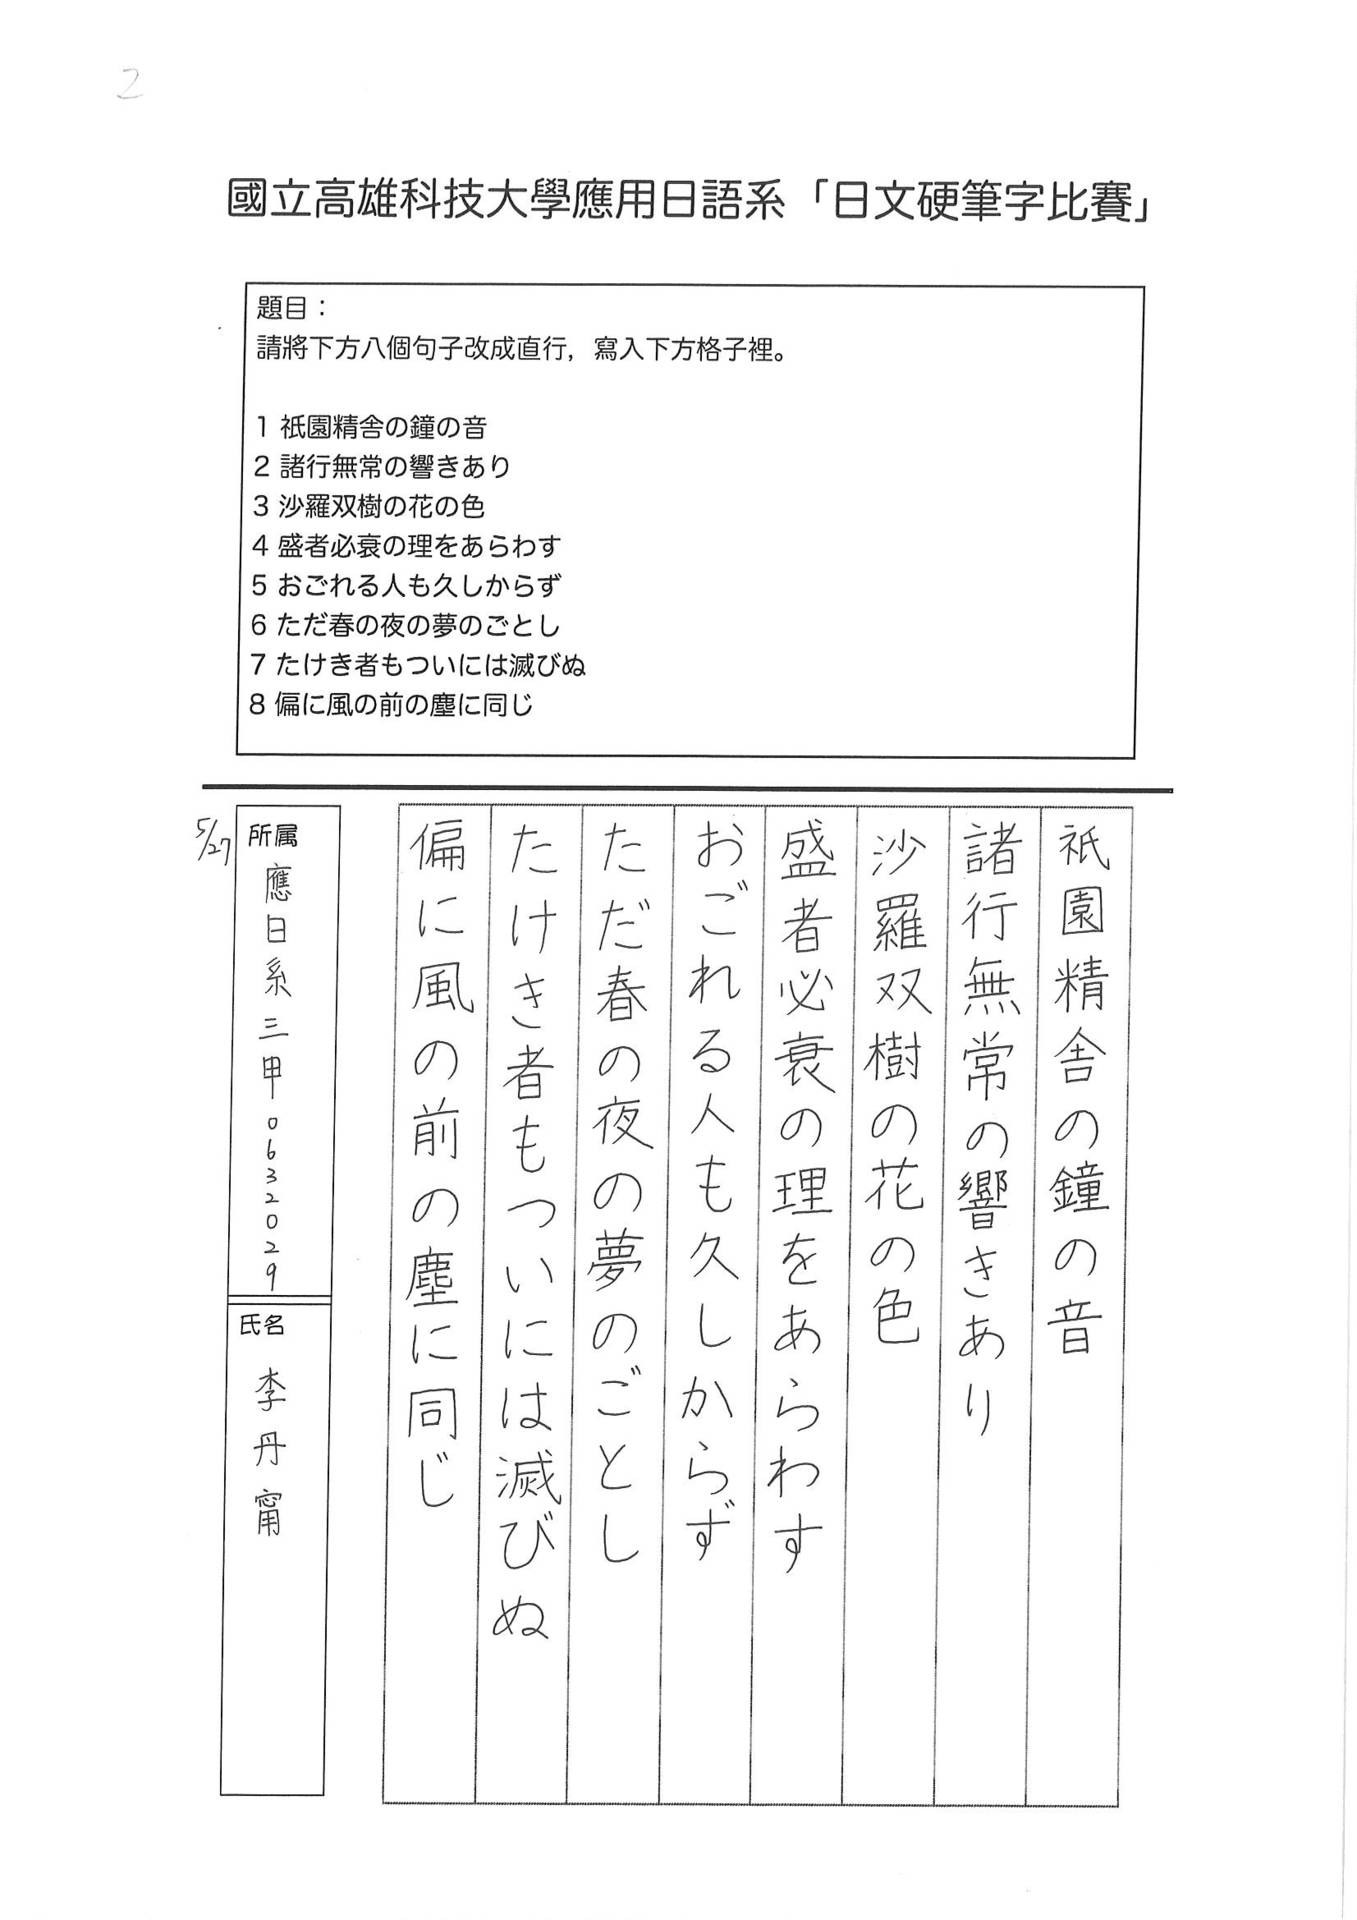 2
國立高雄科技大學應用日語系「日文硬筆字比賽」
題目：
請將下方八個句子改成直行，寫入下方格子裡。
1 祇園精舎の鐘の音
2 諸行無常の響きあり
3 沙羅双樹の花の色
4 盛者必衰の理をあらわす
5 おごれる人も久しからず
6 ただ春の夜の夢のごとし
7 たけき者もついには滅びぬ
8 偏に風の前の塵に同じ
祇園精舎の鐘の音
諸行無常の響きあり
沙羅双樹の花の色
盛者必衰の理をあらわす
おごれる人も久しからず
ただ春の夜の夢のごとし
たけき者もついには滅びぬ
偏に風の前の塵に同じ
所属
應日系三甲0632029
氏名
李丹甯
5/27